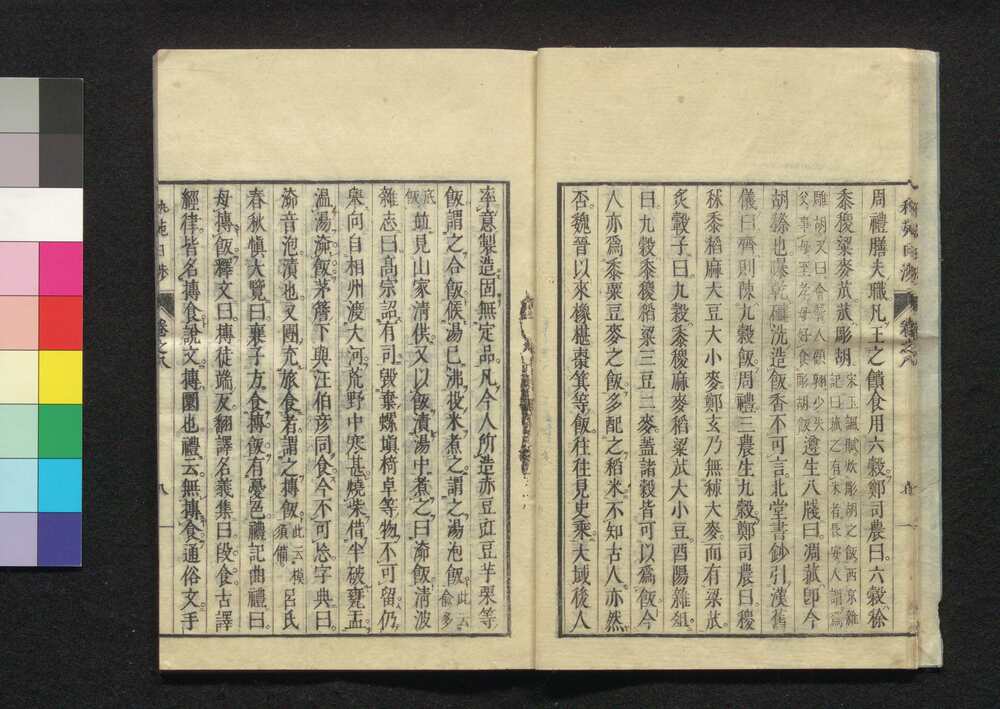 周禮膳夫職凡王之饋食用六穀鄭司農曰六穀稌
黍稷粱麥苽苽彫胡
宋玉諷賦炊彫胡之飯西京雜
記曰菰之有米者長安人謂爲
雕胡又曰會稽人顧翱少失
父事母至孝母好食彫胡飯
遵生八牋曰凋菰卽今
胡穇也曝乾礱洗造飯香不可言北堂書鈔引漢舊
儀曰齊則陳九穀飯周禮三農生九穀鄭司農曰稷
秫黍稻麻大豆大小麥鄭玄乃無秫大麥而有粱苽
炙轂子曰九穀黍稷麻麥稻粱苽大小豆酉陽雜俎
曰九穀黍稷稻粱三豆二麥蓋諸穀皆可以爲飯今
人亦爲黍粟豆麥之飯多配之稻米不知古人亦然
否魏晉以來橡椹棗箕等飯往往見史乘大域後人
率意製造固無定品凡今人所造赤豆豇豆芋栗等
飯謂之合飯候湯已沸投米煮之謂之湯泡飯
此云
俞多
底
飯
始見山家淸供又以飯漬湯中煮之曰淪飯淸波
雜志曰高宗詔有司毀棄螺塡椅卓等物不可留仍
宲向自相州渡大河荒野中寒甚燒柴借半破甕盂
溫湯淪飯茅簷下與汪伯彥同食今不可忘字典曰
淪音泡漬也又團充旅食者謂之摶飯
此云模
須備
呂氏
春秋愼大覽曰襄子方食摶飯有憂色禮記曲禮曰
毋摶飯釋文曰摶徒端反翻譯名義集曰段食古譯
經律皆名摶食說文摶圜也禮云無摶食通俗文手
卷之八
八